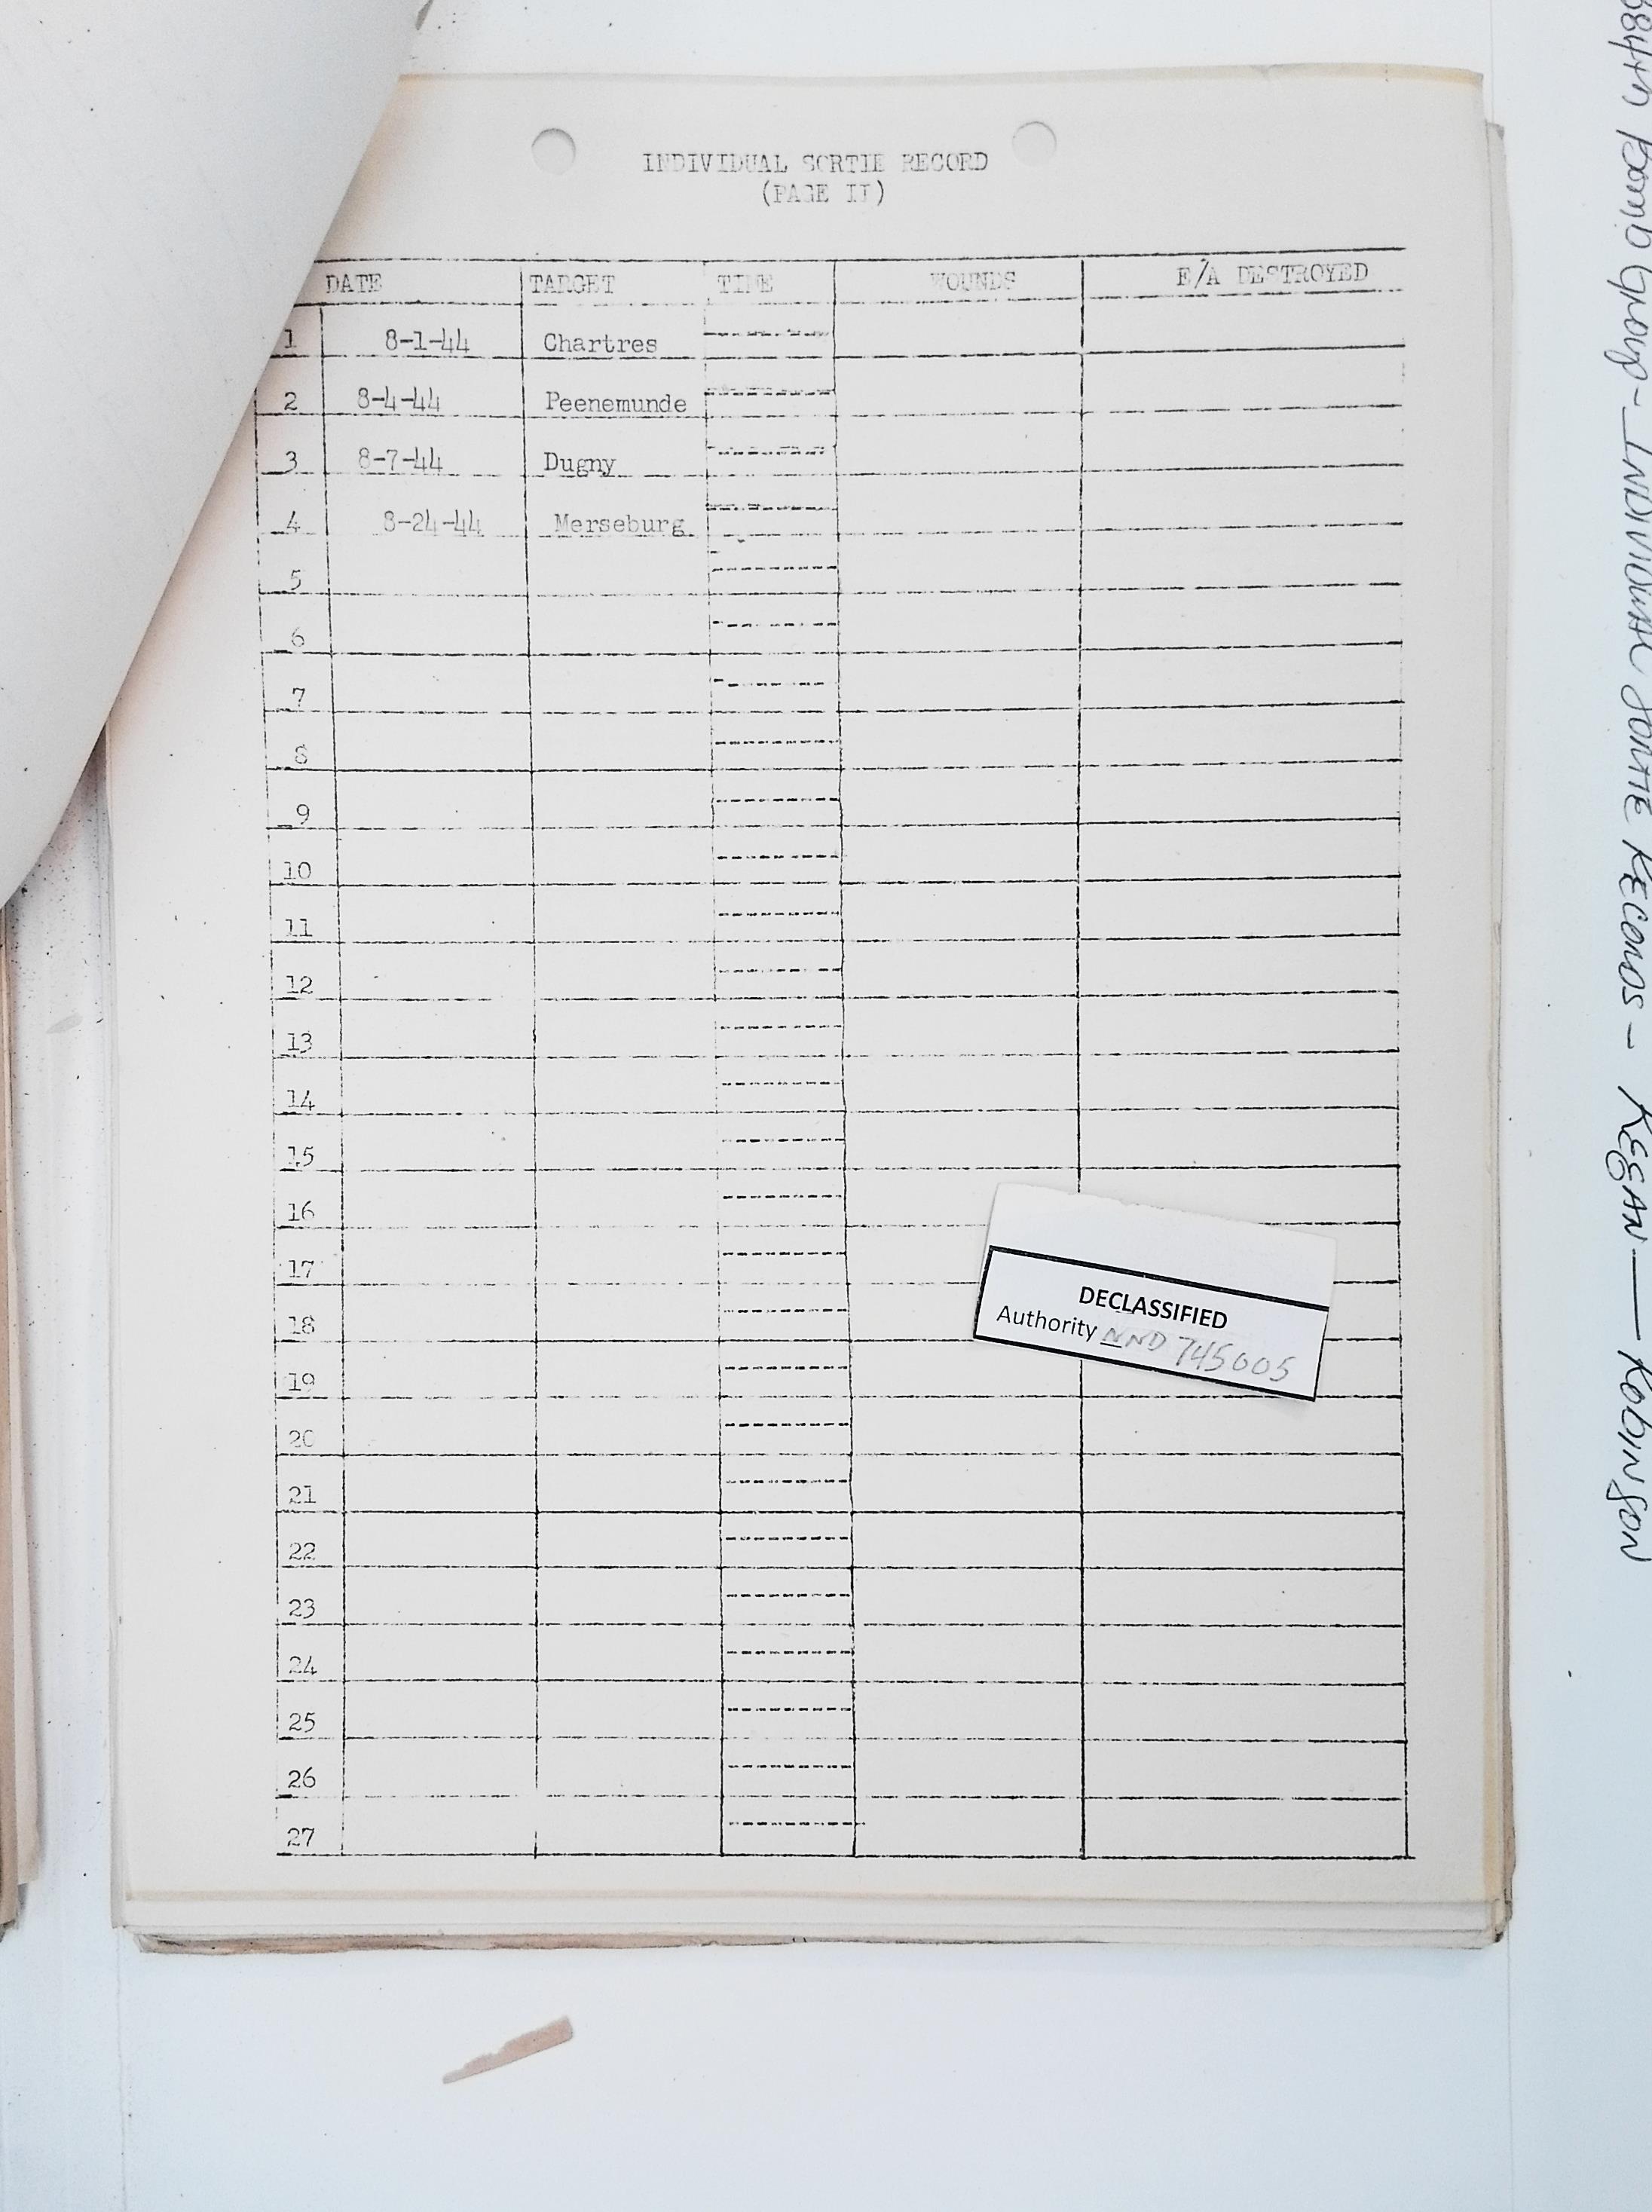 INDIVIDUAL SORTIE RECORD
(PAGE II)
DATE TARGET TIME WOUNDS E/A DESTROYED
1 8-1-44 Chartres
2 8-4-44 Peenemunde
3 8-7-44 Dugny
4 8-24-44 Merseburg
5
6
7
8
9
10
11
12
13
14
15
16
17
18
19
20
21
22
23
24
25
26
27
DECLASSIFIED
Authority NND 745005
384th Bomb Group - INDIVIDUAL SORTIE RECORDS - KEGAN — Robinson